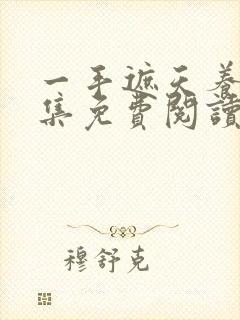 一手遮天養
集免費閱讀
穆舒克